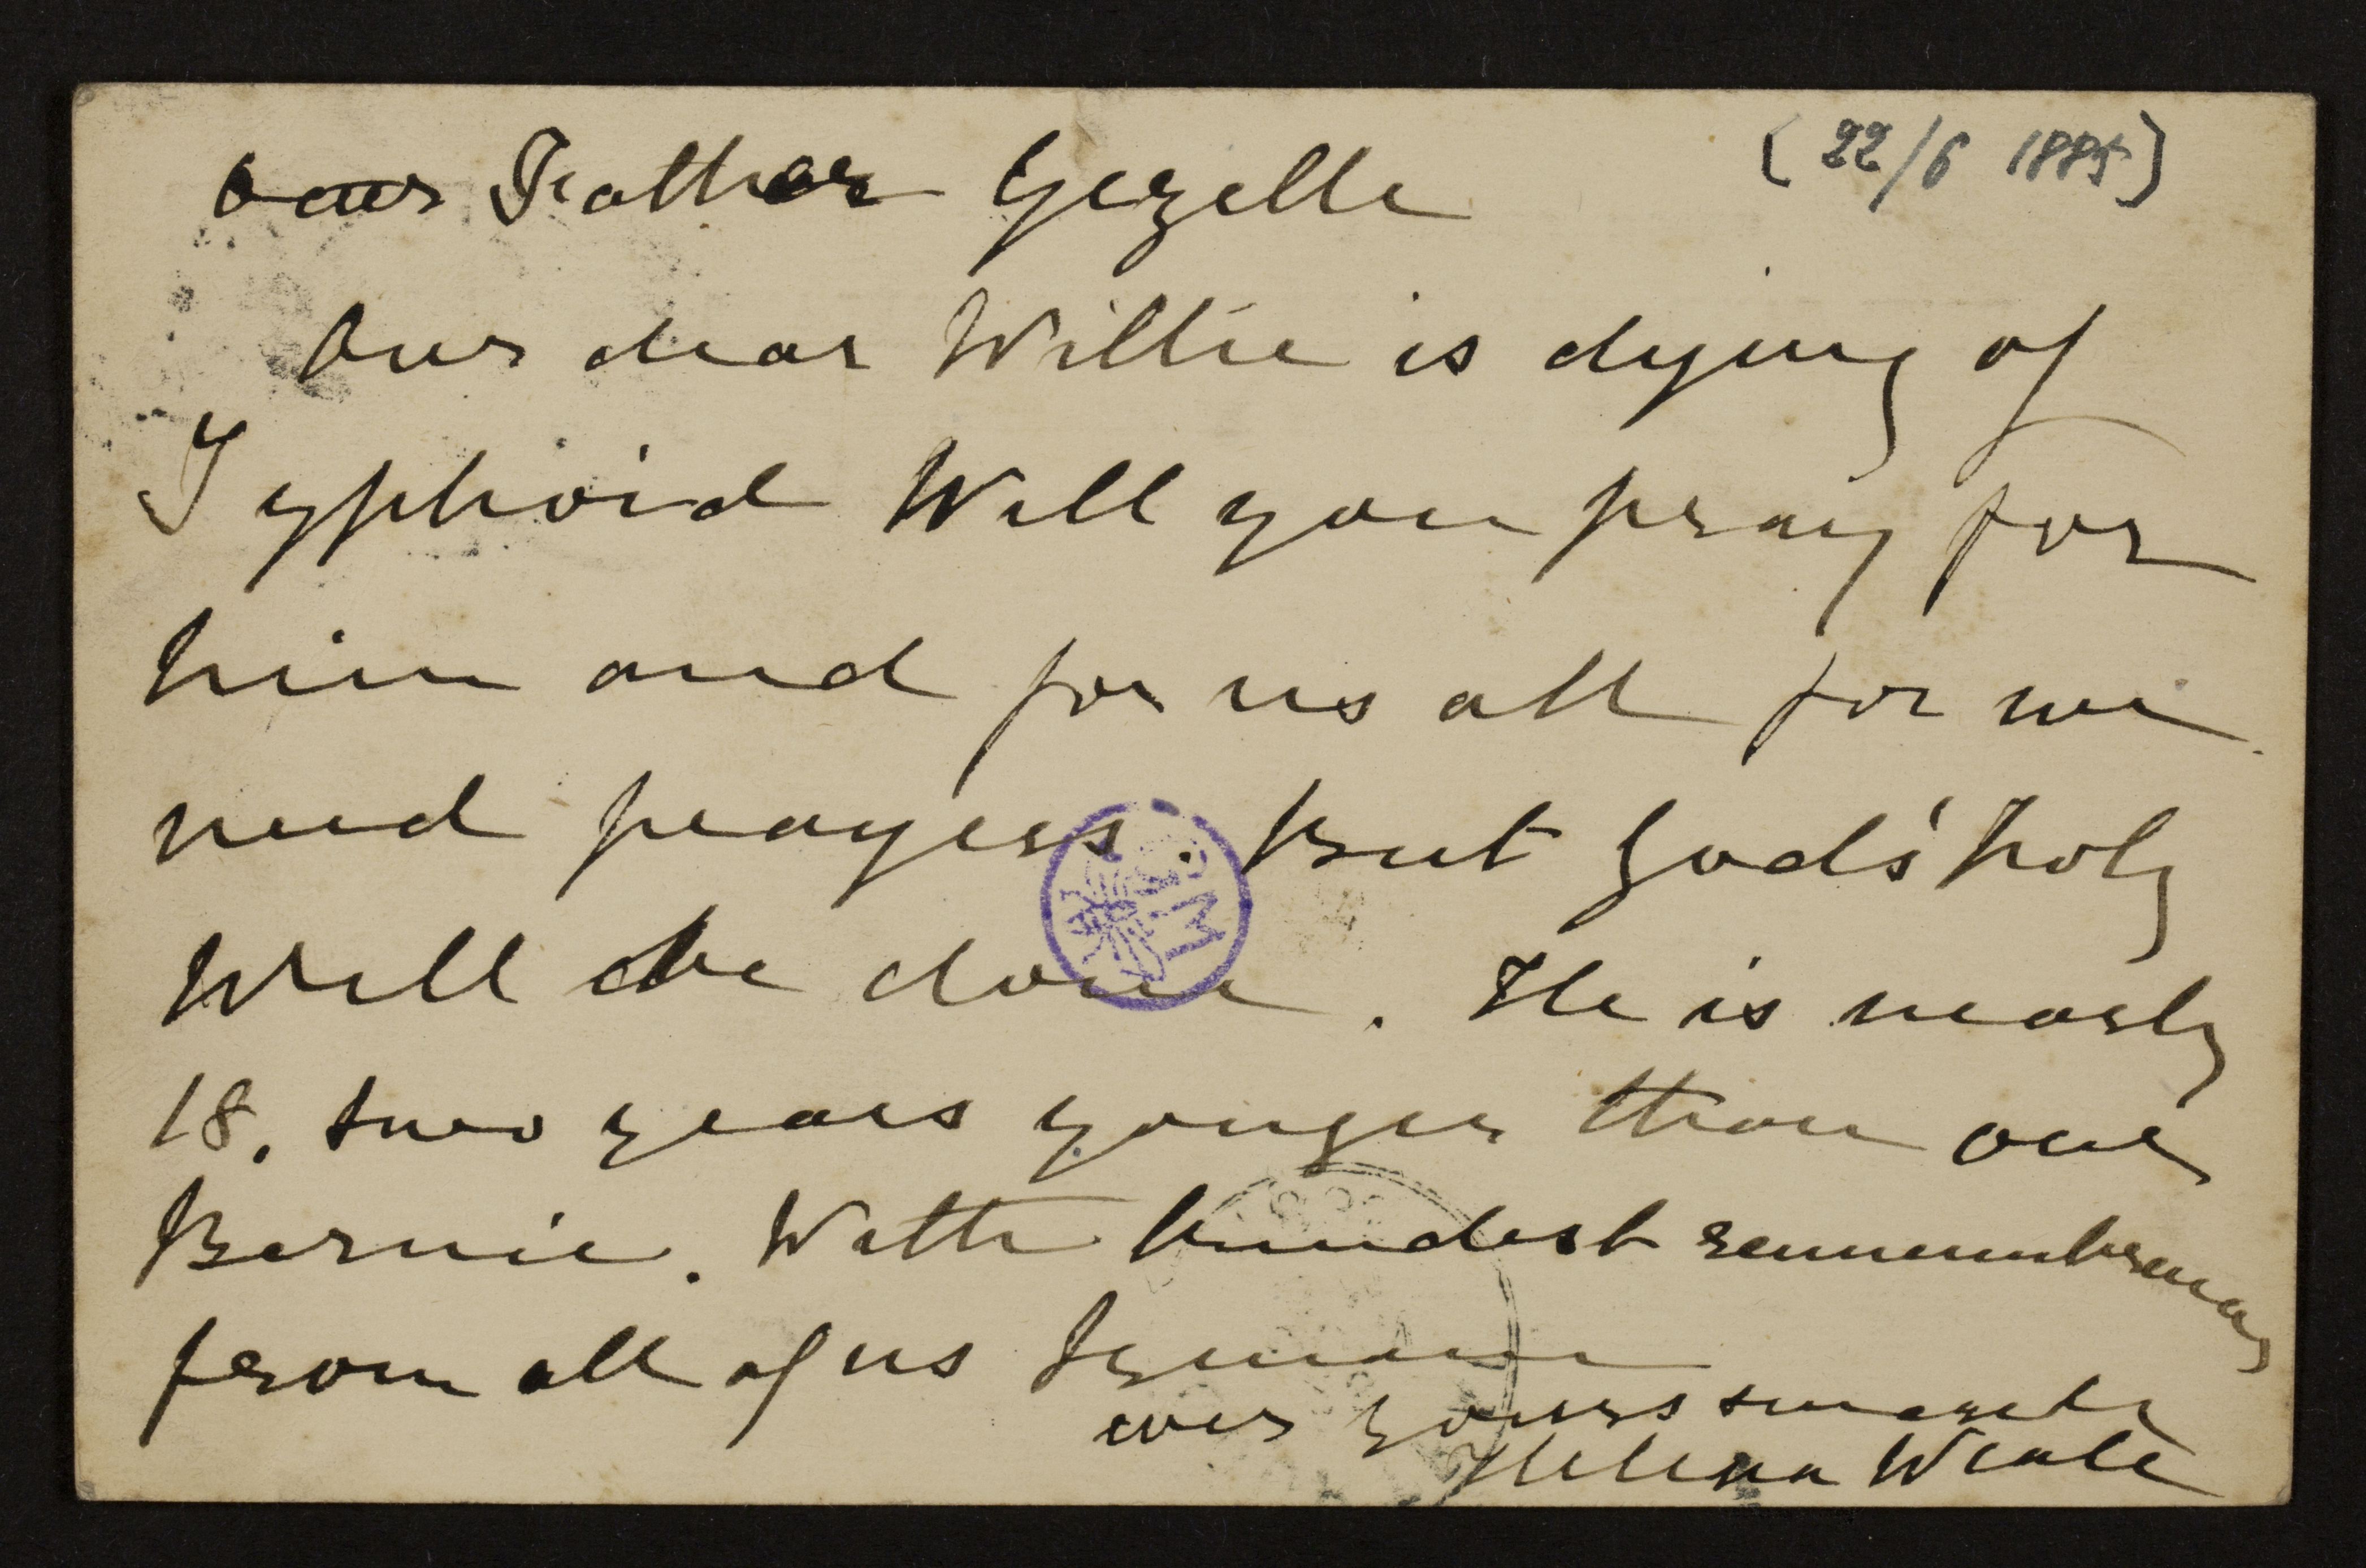 Dear Father Gezelle
(22/6 1885)
Our dear Willie is dying of
Typhoid Will you pray for
him and for us all for we
need prayers. But God's holy
Will be done. He is nearly
18. two years yonger than our
Bernie. With kindest remembrances
from all of us I remain
ever yours sincerely
Helena Weale